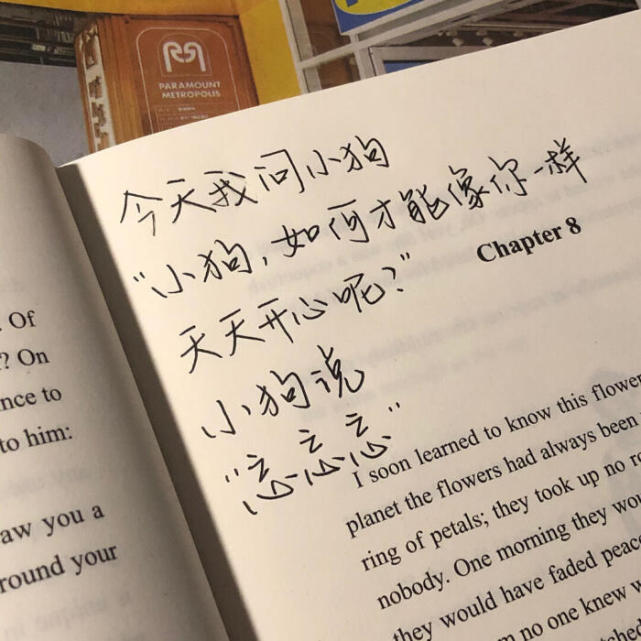 PARAMOUNT
METROPOLIS
今天我问小狗
“小狗,如何才能像你一样
天天开心呢?”
小狗说
“忘忘忘”
Chapter 8
. Of
? On
to
to him:
aw you a
round your
I soon learned to know this flower
planet the flowers had always been
ring of petals; they took up no
nobody. One morning they
they would have faded
no one knew